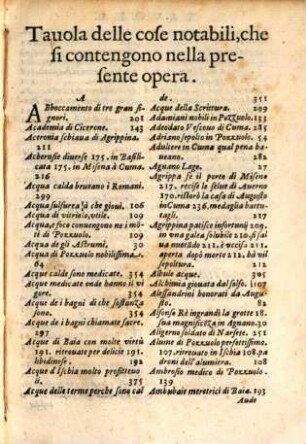 Tauola delle cose notabili, che
si contengono nella pre-
sente opera.
A
ABboccamento di tre gran si
gnori. 201
Academia di Cicerone. 143
Aceronia schiaua di Agrippina.
211
Acherusie diuerse 175. in Basili
cata 175. in Misena à Cuma
216
Acqua calda beueano i Romani.
299
Acqua sulfurea à che gioui. 106
Acqua di vitriolo, vtile. 109
Acqua, e foce conuengono ne i mō
ti di Pozzuolo. 109
Acqua de gli Astruni. 30
Acqua di Pozzuolo nobilissima.
64
Acque calde sono medicate. 354
Acque medicate onde hanno il vi
gore. 354
Acque de i bagni di che sostanza
sono. 354
Acque de i bagni chiamate sacre.
297
Acque di Baia con molte virtù
191. ritrouate per delicie 191.
libidinose. 192
Acque d'Ischia molto profitteuo
li. 375
Acque delle terme perche sono cal
de. 351
Acque della Scrittura. 299
Adamiani nobili in Pozzuolo. 133
Adeodato Vescouo di Cuma. 285
Adriano sepolto in Pozzuolo. 54
Adultere in Cuma qual pena ha
ueano. 282
Agnano Lago. 27
Agrippa fe il porto di Misena
217. recise le selue di Auerno
170. ristorò la casa di Augusto
in Cuma 236. medaglia battu
tagli. 217
Agrippina patisce infortunij 209.
in vna galea solubile 210. si sal
ua nuotādo 211. è vccisa 211.
aperta dopò morte 212. hà vil
sepoltura. 212
Albule acque. 305
Alchimia giouata dal solfo. 107
Alessandrini honorati da Augu
sto. 82
Alfonso Rè ingrandì la grotte 18.
sua magnificēza in Agnano. 30
Aligerno soldato di Narsete. 251
Alume di Pozzuolo perfettissimo.
107. ritrouato in Ischia 108. pa
droni dell'alumiera. 108
Ambrosio medico di Pozzuolo.
139
Ambubaie meretrici di Baia. 193
Aude